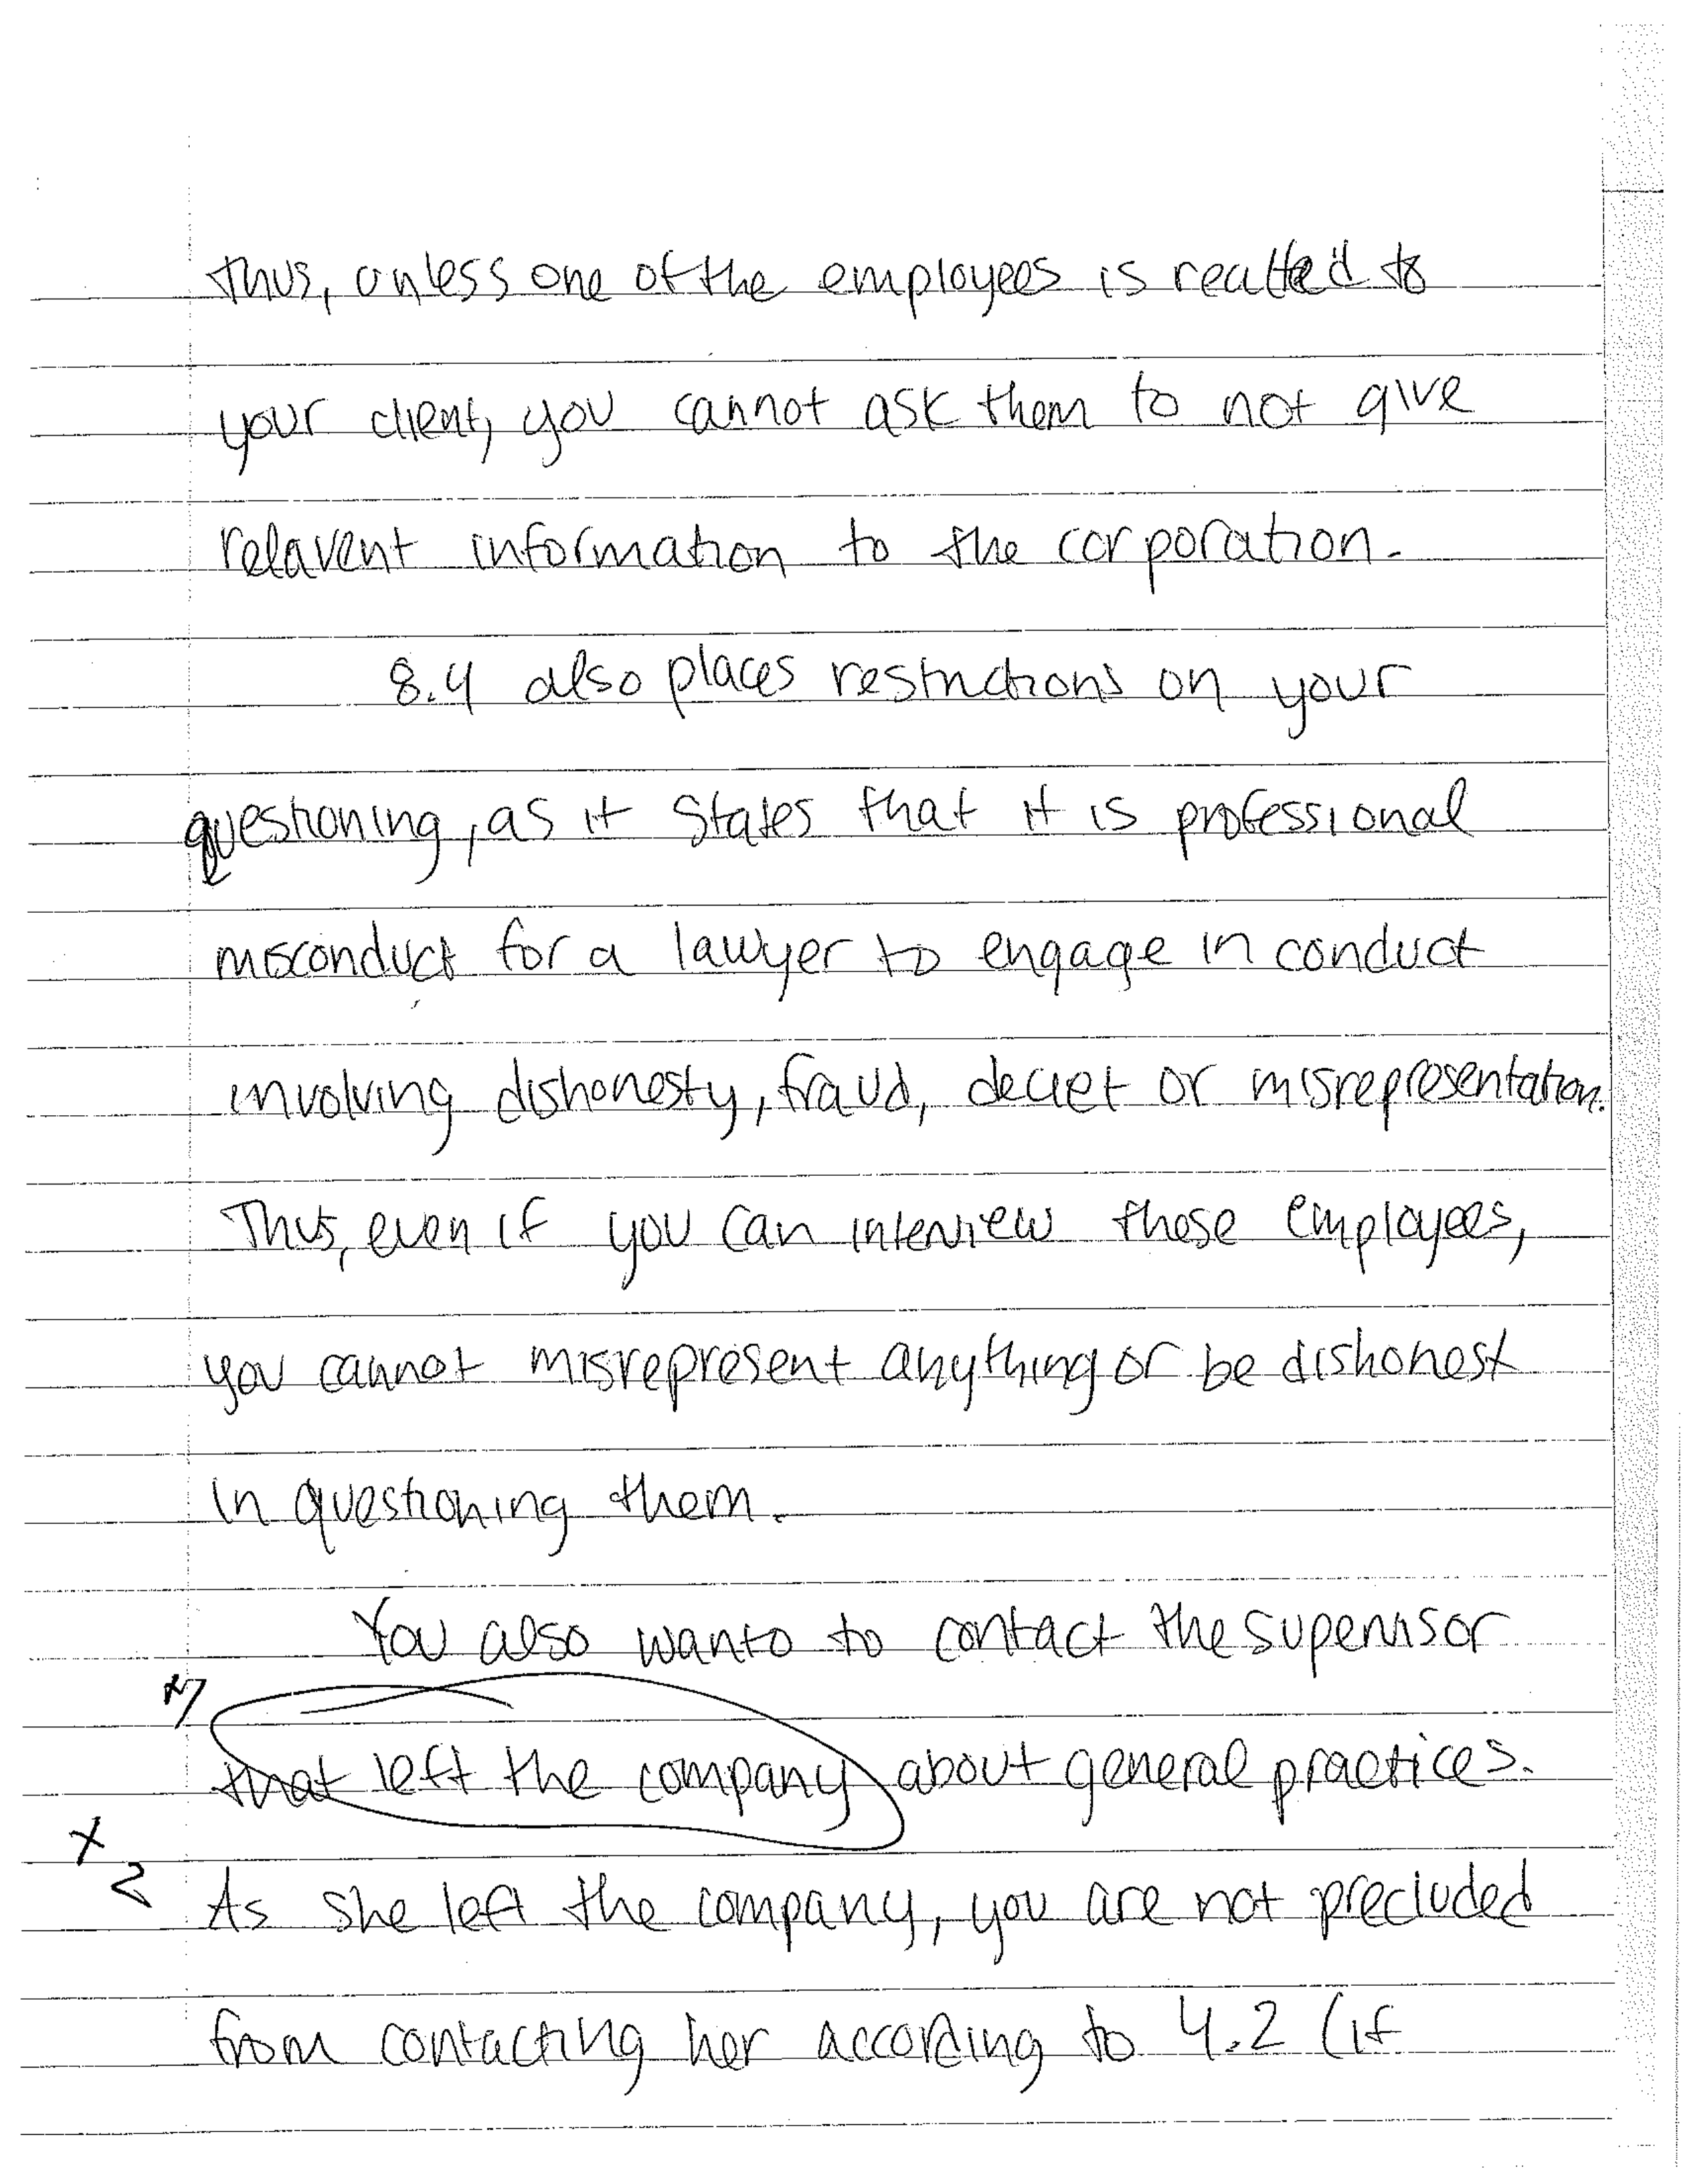 Thus, unless one of the employees is realted to
your client, you cannot ask them to not give
relavent information to the corporation.
8.4 also places restrictions on your
questioning, as it states that it is professional
misconduct for a lawyer to engage in conduct
involving dishonesty, fraud, deciet or misrepresentation.
Thus, even if you can interview these employees,
you cannot misrepresent anything or be dishonest
in questioning them.
You also wanto to contact the supervisor
that left the company about general practices.
X
2
As she left the company, you are not precluded
from contacting her according to 4.2 (if